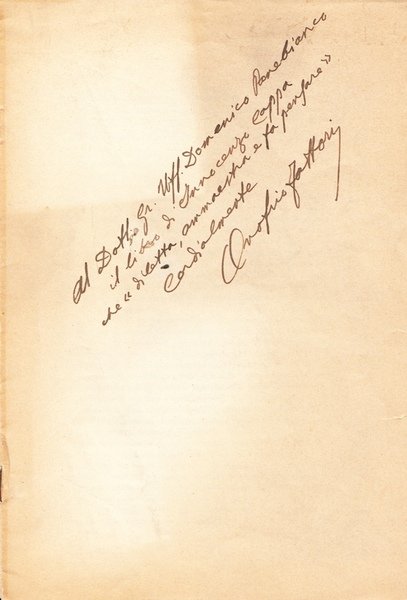 Al Dott. Gr. Uff. Domenico Panebianco
il libro di Innocenzo Cappa
che « diletta, ammaestra e fa pensare »
Cordialmente
Onofrio Fattori